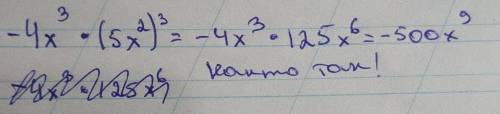 -4x³ · (5x²)³ = -4x³ · 125x⁶ = -500x⁹
както так!